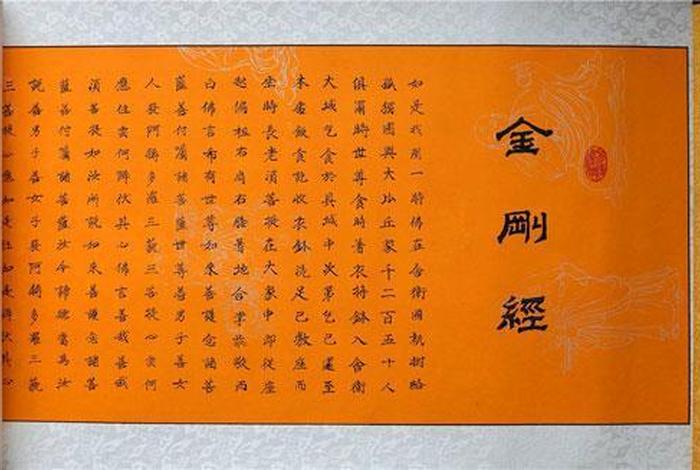 金剛經
如是我聞一時佛在舍衛國祇樹給
孤獨園與大比丘眾千二百五十人
俱爾時世尊食時著衣持缽入舍衛
大城乞食於其城中次第乞已還至
本處飯食訖收衣缽洗足已敷座而
坐時長老須菩提在大眾中即從座
起偏袒右肩右膝著地合掌恭敬而
白佛言希有世尊如來善護念諸菩
薩善付囑諸菩薩世尊善男子善女
人發阿耨多羅三藐三菩提心云何
應住云何降伏其心佛言善哉善哉
須菩提如汝所說如來善護念諸菩
薩善付囑諸菩薩汝今諦聽當為汝
說善男子善女子發阿耨多羅三藐
三菩提心應如是住如是降伏其心